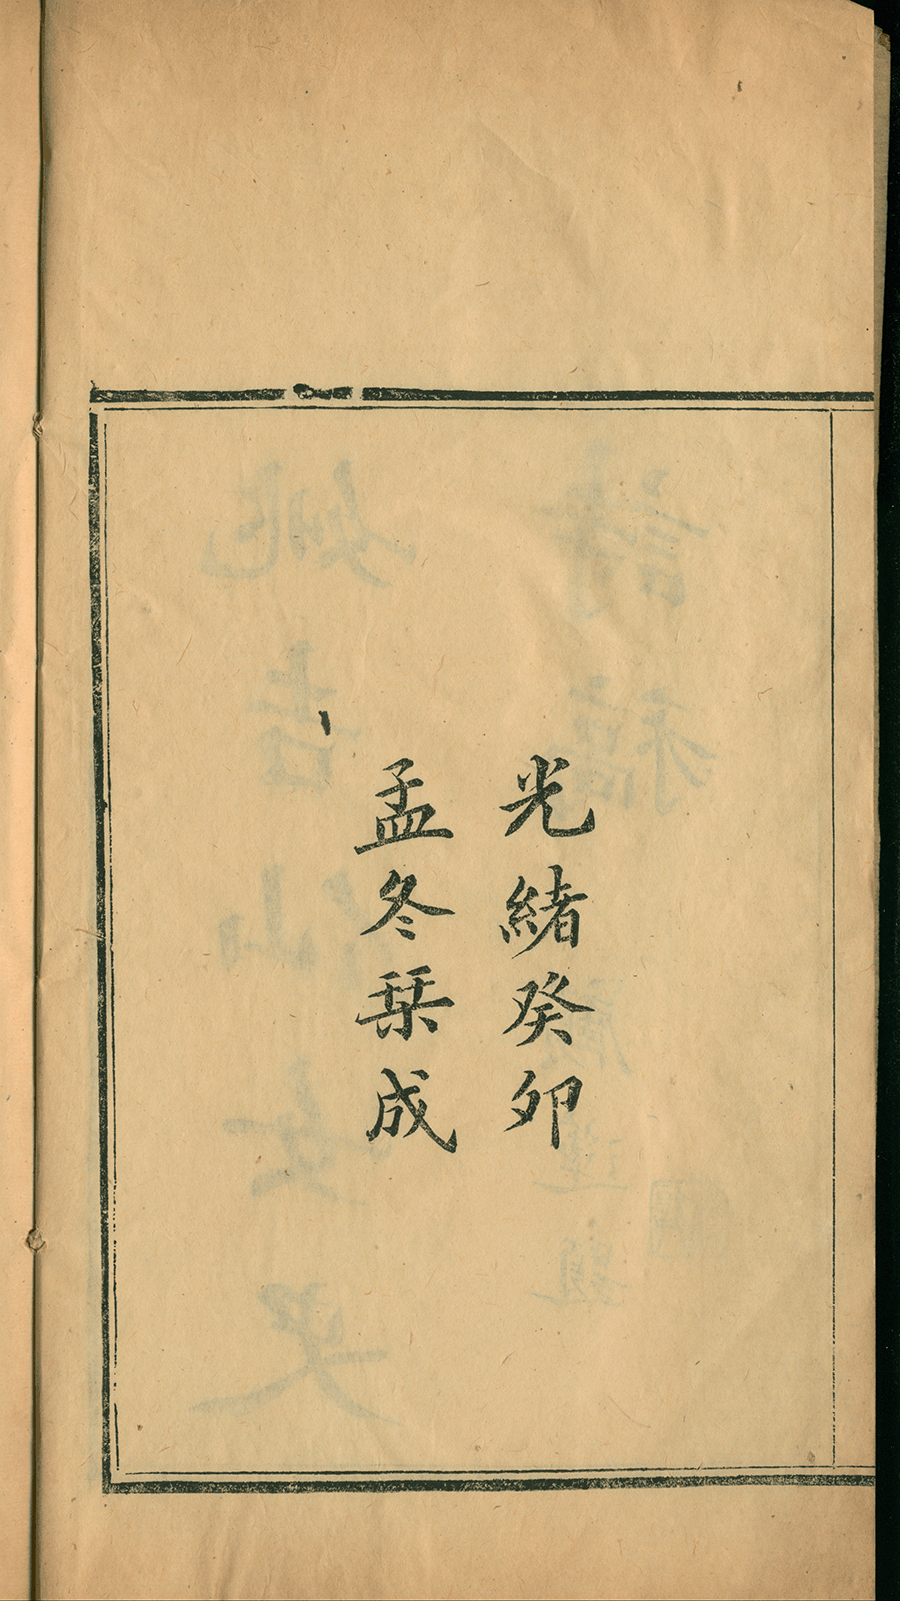 光緒癸卯
孟冬栞成